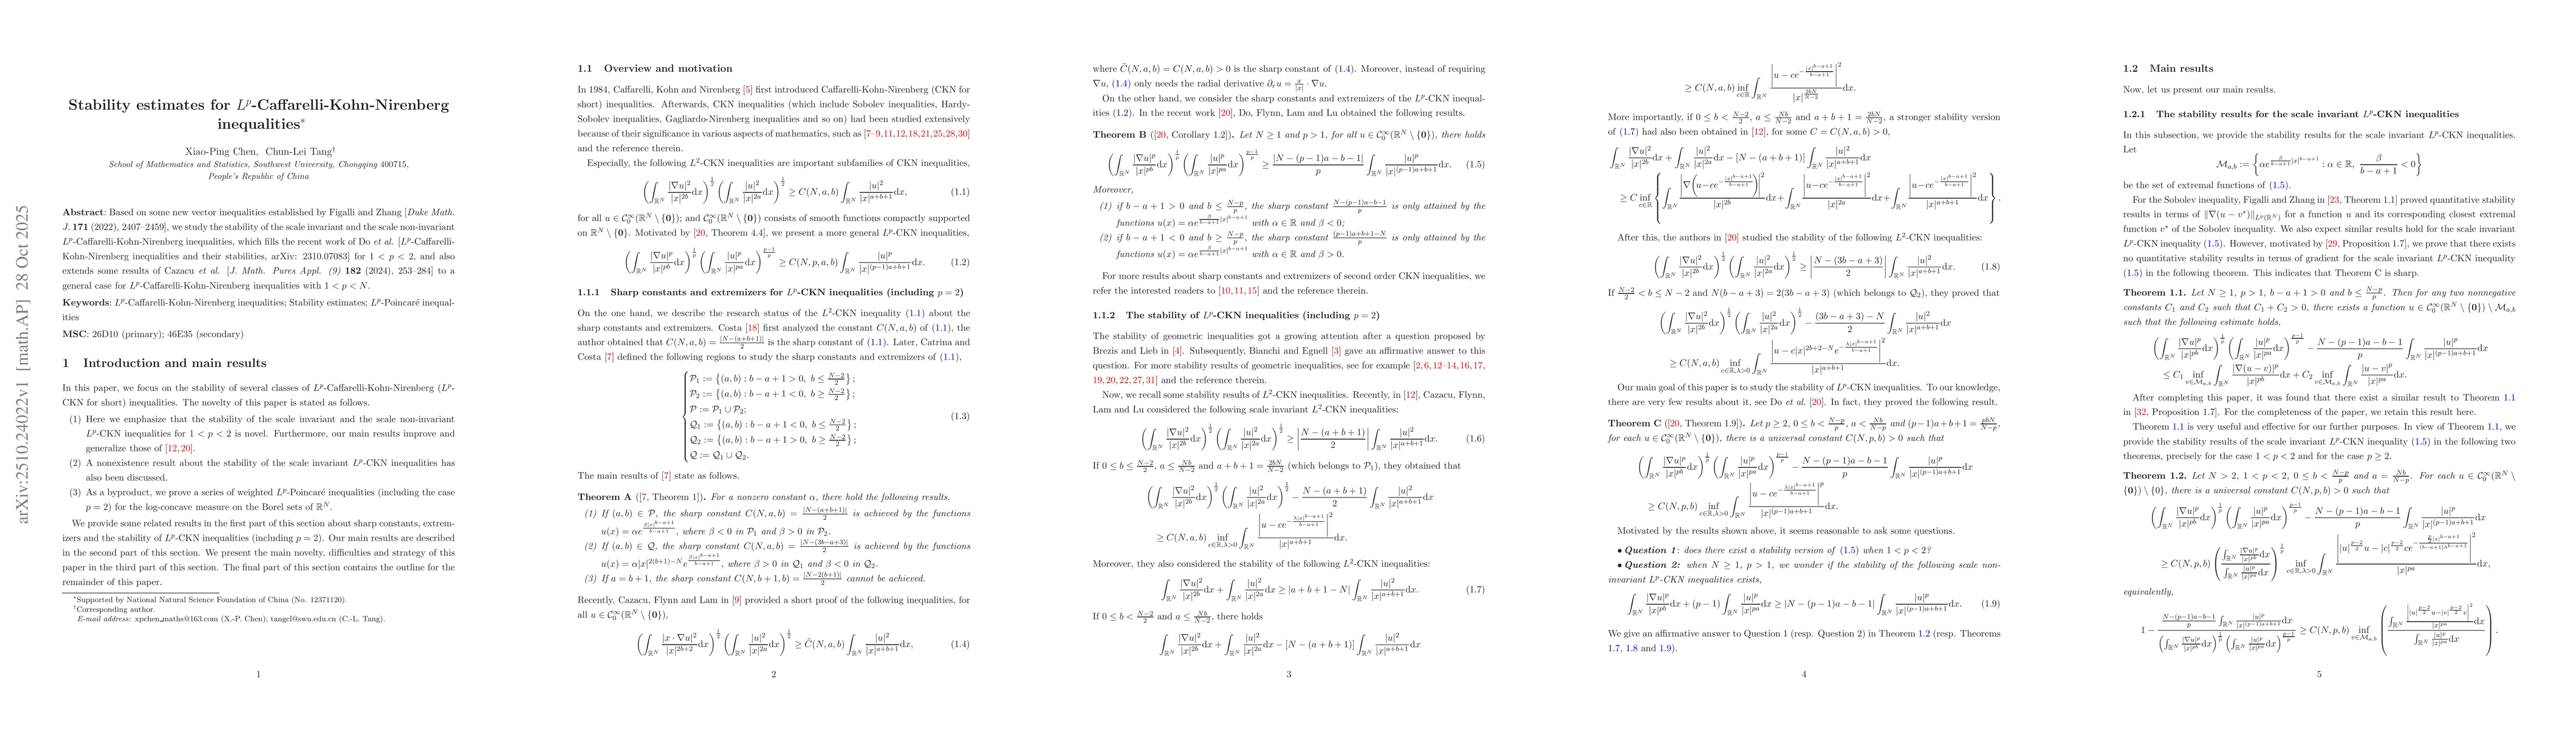 arXiv:2510.24022v1 [math.AP] 28 Oct 2025
Stability estimates for L^p-Caffarelli-Kohn-Nirenberg
inequalities*
Xiao-Ping Chen, Chun-Lei Tang†
School of Mathematics and Statistics, Southwest University, Chongqing 400715,
People's Republic of China
Abstract: Based on some new vector inequalities established by Figalli and Zhang [Duke Math.
J. 171 (2022), 2407–2459], we study the stability of the scale invariant and the scale non-invariant
L^p-Caffarelli-Kohn-Nirenberg inequalities, which fills the recent work of Do et al. [L^p-Caffarelli-
Kohn-Nirenberg inequalities and their stabilities, arXiv: 2310.07083] for 1 < p < 2, and also
extends some results of Cazacu et al. [J. Math. Pures Appl. (9) 182 (2024), 253–284] to a
general case for L^p-Caffarelli-Kohn-Nirenberg inequalities with 1 < p < N.
Keywords: L^p-Caffarelli-Kohn-Nirenberg inequalities; Stability estimates; L^p-Poincaré inequal-
ities
MSC: 26D10 (primary); 46E35 (secondary)
1 Introduction and main results
In this paper, we focus on the stability of several classes of L^p-Caffarelli-Kohn-Nirenberg (L^p-
CKN for short) inequalities. The novelty of this paper is stated as follows.
(1) Here we emphasize that the stability of the scale invariant and the scale non-invariant
L^p-CKN inequalities for 1 < p < 2 is novel. Furthermore, our main results improve and
generalize those of [12,20].
(2) A nonexistence result about the stability of the scale invariant L^p-CKN inequalities has
also been discussed.
(3) As a byproduct, we prove a series of weighted L^p-Poincaré inequalities (including the case
p = 2) for the log-concave measure on the Borel sets of ℝ^N.
We provide some related results in the first part of this section about sharp constants, extrem-
izers and the stability of L^p-CKN inequalities (including p = 2). Our main results are described
in the second part of this section. We present the main novelty, difficulties and strategy of this
paper in the third part of this section. The final part of this section contains the outline for the
remainder of this paper.
*Supported by National Natural Science Foundation of China (No. 12371120).
†Corresponding author.
E-mail address: xpchen_maths@163.com (X.-P. Chen); tangcl@swu.edu.cn (C.-L. Tang).
1
1.1 Overview and motivation
In 1984, Caffarelli, Kohn and Nirenberg [5] first introduced Caffarelli-Kohn-Nirenberg (CKN for
short) inequalities. Afterwards, CKN inequalities (which include Sobolev inequalities, Hardy-
Sobolev inequalities, Gagliardo-Nirenberg inequalities and so on) had been studied extensively
because of their significance in various aspects of mathematics, such as [7–9,11,12,18,21,25,28,30]
and the reference therein.
Especially, the following L²-CKN inequalities are important subfamilies of CKN inequalities,
(∫_{ℝ^N} |∇u|²/|x|^{2b} dx)^{1/2} (∫_{ℝ^N} |u|²/|x|^{2a} dx)^{1/2} ≥ C(N,a,b) ∫_{ℝ^N} |u|²/|x|^{a+b+1} dx, (1.1)
for all u ∈ C_0^∞(ℝ^N \ {0}); and C_0^∞(ℝ^N \ {0}) consists of smooth functions compactly supported
on ℝ^N \ {0}. Motivated by [20, Theorem 4.4], we present a more general L^p-CKN inequalities,
(∫_{ℝ^N} |∇u|^p/|x|^{pb} dx)^{1/p} (∫_{ℝ^N} |u|^p/|x|^{pa} dx)^{(p-1)/p} ≥ C(N,p,a,b) ∫_{ℝ^N} |u|^p/|x|^{(p-1)a+b+1} dx. (1.2)
1.1.1 Sharp constants and extremizers for L^p-CKN inequalities (including p = 2)
On the one hand, we describe the research status of the L²-CKN inequality (1.1) about the
sharp constants and extremizers. Costa [18] first analyzed the constant C(N,a,b) of (1.1), the
author obtained that C(N,a,b) = |N-(a+b+1)|/2 is the sharp constant of (1.1). Later, Catrina and
Costa [7] defined the following regions to study the sharp constants and extremizers of (1.1),
P₁ := {(a,b) : b − a + 1 > 0, b ≤ (N-2)/2};
P₂ := {(a,b) : b − a + 1 < 0, b ≥ (N-2)/2};
P := P₁ ∪ P₂;
Q₁ := {(a,b) : b − a + 1 < 0, b ≤ (N-2)/2};
Q₂ := {(a,b) : b − a + 1 > 0, b ≥ (N-2)/2};
Q := Q₁ ∪ Q₂.
(1.3)
The main results of [7] state as follows.
Theorem A ([7, Theorem 1]). For a nonzero constant α, there hold the following results.
(1) If (a,b) ∈ P, the sharp constant C(N,a,b) = |N-(a+b+1)|/2 is achieved by the functions
u(x) = αe^{β|x|^{b-a+1}/(b-a+1)}, where β < 0 in P₁ and β > 0 in P₂.
(2) If (a,b) ∈ Q, the sharp constant C(N,a,b) = |N-(3b-a+3)|/2 is achieved by the functions
u(x) = α|x|^{2(b+1)-N} e^{β|x|^{b-a+1}/(b-a+1)}, where β > 0 in Q₁ and β < 0 in Q₂.
(3) If a = b + 1, the sharp constant C(N,b+1,b) = |N-2(b+1)|/2 cannot be achieved.
Recently, Cazacu, Flynn and Lam in [9] provided a short proof of the following inequalities, for
all u ∈ C_0^∞(ℝ^N \ {0}),
(∫_{ℝ^N} |x · ∇u|²/|x|^{2b+2} dx)^{1/2} (∫_{ℝ^N} |u|²/|x|^{2a} dx)^{1/2} ≥ C̃(N,a,b) ∫_{ℝ^N} |u|²/|x|^{a+b+1} dx, (1.4)
2
where C̃(N,a,b) = C(N,a,b) > 0 is the sharp constant of (1.4). Moreover, instead of requiring
∇u, (1.4) only needs the radial derivative ∂_r u = x/|x| · ∇u.
On the other hand, we consider the sharp constants and extremizers of the L^p-CKN inequal-
ities (1.2). In the recent work [20], Do, Flynn, Lam and Lu obtained the following results.
Theorem B ([20, Corollary 1.2]). Let N ≥ 1 and p > 1, for all u ∈ C_0^∞(ℝ^N \ {0}), there holds
(∫_{ℝ^N} |∇u|^p/|x|^{pb} dx)^{1/p} (∫_{ℝ^N} |u|^p/|x|^{pa} dx)^{(p-1)/p} ≥ |N-(p-1)a-b-1|/p ∫_{ℝ^N} |u|^p/|x|^{(p-1)a+b+1} dx. (1.5)
Moreover,
(1) if b − a + 1 > 0 and b ≤ (N-p)/p, the sharp constant (N-(p-1)a-b-1)/p is only attained by the
functions u(x) = αe^{β/(b-a+1) |x|^{b-a+1}} with α ∈ ℝ and β < 0;
(2) if b − a + 1 < 0 and b ≥ (N-p)/p, the sharp constant ((p-1)a+b+1-N)/p is only attained by the
functions u(x) = αe^{β/(b-a+1) |x|^{b-a+1}} with α ∈ ℝ and β > 0.
For more results about sharp constants and extremizers of second order CKN inequalities, we
refer the interested readers to [10,11,15] and the reference therein.
1.1.2 The stability of L^p-CKN inequalities (including p = 2)
The stability of geometric inequalities got a growing attention after a question proposed by
Brezis and Lieb in [4]. Subsequently, Bianchi and Egnell [3] gave an affirmative answer to this
question. For more stability results of geometric inequalities, see for example [2,6,12–14,16,17,
19,20,22,27,31] and the reference therein.
Now, we recall some stability results of L²-CKN inequalities. Recently, in [12], Cazacu, Flynn,
Lam and Lu considered the following scale invariant L²-CKN inequalities:
(∫_{ℝ^N} |∇u|²/|x|^{2b} dx)^{1/2} (∫_{ℝ^N} |u|²/|x|^{2a} dx)^{1/2} ≥ |(N-(a+b+1))/2| ∫_{ℝ^N} |u|²/|x|^{a+b+1} dx. (1.6)
If 0 ≤ b ≤ (N-2)/2, a ≤ Nb/(N-2) and a + b + 1 = 2bN/(N-2) (which belongs to P₁), they obtained that
(∫_{ℝ^N} |∇u|²/|x|^{2b} dx)^{1/2} (∫_{ℝ^N} |u|²/|x|^{2a} dx)^{1/2} − (N-(a+b+1))/2 ∫_{ℝ^N} |u|²/|x|^{a+b+1} dx
≥ C(N,a,b) inf_{c∈ℝ,λ>0} ∫_{ℝ^N} |u − ce^{-λ|x|^{b-a+1}/(b-a+1)}|²/|x|^{a+b+1} dx.
Moreover, they also considered the stability of the following L²-CKN inequalities:
∫_{ℝ^N} |∇u|²/|x|^{2b} dx + ∫_{ℝ^N} |u|²/|x|^{2a} dx ≥ |a + b + 1 − N| ∫_{ℝ^N} |u|²/|x|^{a+b+1} dx. (1.7)
If 0 ≤ b < (N-2)/2 and a ≤ Nb/(N-2), there holds
∫_{ℝ^N} |∇u|²/|x|^{2b} dx + ∫_{ℝ^N} |u|²/|x|^{2a} dx − [N − (a + b + 1)] ∫_{ℝ^N} |u|²/|x|^{a+b+1} dx
3
≥ C(N,a,b) inf_{c∈ℝ} ∫_{ℝ^N} |u − ce^{-|x|^{b-a+1}/(b-a+1)}|²/|x|^{2bN/(N-2)} dx.
More importantly, if 0 ≤ b < (N-2)/2, a ≤ Nb/(N-2) and a + b + 1 = 2bN/(N-2), a stronger stability version
of (1.7) had also been obtained in [12], for some C = C(N,a,b) > 0,
∫_{ℝ^N} |∇u|²/|x|^{2b} dx + ∫_{ℝ^N} |u|²/|x|^{2a} dx − [N − (a + b + 1)] ∫_{ℝ^N} |u|²/|x|^{a+b+1} dx
≥ C inf_{c∈ℝ} {∫_{ℝ^N} |∇(u−ce^{-|x|^{b-a+1}/(b-a+1)})|²/|x|^{2b} dx + ∫_{ℝ^N} |u−ce^{-|x|^{b-a+1}/(b-a+1)}|²/|x|^{2a} dx + ∫_{ℝ^N} |u−ce^{-|x|^{b-a+1}/(b-a+1)}|²/|x|^{a+b+1} dx}.
After this, the authors in [20] studied the stability of the following L²-CKN inequalities:
(∫_{ℝ^N} |∇u|²/|x|^{2b} dx)^{1/2} (∫_{ℝ^N} |u|²/|x|^{2a} dx)^{1/2} ≥ |(N-(3b-a+3))/2| ∫_{ℝ^N} |u|²/|x|^{a+b+1} dx. (1.8)
If (N-2)/2 < b ≤ N − 2 and N(b − a + 3) = 2(3b − a + 3) (which belongs to Q₂), they proved that
(∫_{ℝ^N} |∇u|²/|x|^{2b} dx)^{1/2} (∫_{ℝ^N} |u|²/|x|^{2a} dx)^{1/2} − ((3b-a+3)-N)/2 ∫_{ℝ^N} |u|²/|x|^{a+b+1} dx
≥ C(N,a,b) inf_{c∈ℝ,λ>0} ∫_{ℝ^N} |u − c|x|^{2b+2-N} e^{-λ|x|^{b-a+1}/(b-a+1)}|²/|x|^{a+b+1} dx.
Our main goal of this paper is to study the stability of L^p-CKN inequalities. To our knowledge,
there are very few results about it, see Do et al. [20]. In fact, they proved the following result.
Theorem C ([20, Theorem 1.9]). Let p ≥ 2, 0 ≤ b < (N-p)/p, a < Nb/(N-p) and (p−1)a+b+1 = pbN/(N-p),
for each u ∈ C_0^∞(ℝ^N \ {0}), there is a universal constant C(N,p,b) > 0 such that
(∫_{ℝ^N} |∇u|^p/|x|^{pb} dx)^{1/p} (∫_{ℝ^N} |u|^p/|x|^{pa} dx)^{(p-1)/p} − (N-(p-1)a-b-1)/p ∫_{ℝ^N} |u|^p/|x|^{(p-1)a+b+1} dx
≥ C(N,p,b) inf_{c∈ℝ,λ>0} ∫_{ℝ^N} |u − ce^{-λ|x|^{b-a+1}/(b-a+1)}|^p/|x|^{(p-1)a+b+1} dx.
Motivated by the results shown above, it seems reasonable to ask some questions.
• Question 1: does there exist a stability version of (1.5) when 1 < p < 2?
• Question 2: when N ≥ 1, p > 1, we wonder if the stability of the following scale non-
invariant L^p-CKN inequalities exists,
∫_{ℝ^N} |∇u|^p/|x|^{pb} dx + (p − 1) ∫_{ℝ^N} |u|^p/|x|^{pa} dx ≥ |N − (p − 1)a − b − 1| ∫_{ℝ^N} |u|^p/|x|^{(p-1)a+b+1} dx. (1.9)
We give an affirmative answer to Question 1 (resp. Question 2) in Theorem 1.2 (resp. Theorems
1.7, 1.8 and 1.9).
4
1.2 Main results
Now, let us present our main results.
1.2.1 The stability results for the scale invariant L^p-CKN inequalities
In this subsection, we provide the stability results for the scale invariant L^p-CKN inequalities.
Let
M_{a,b} := {αe^{β/(b-a+1) |x|^{b-a+1}} : α ∈ ℝ, β/(b-a+1) < 0}
be the set of extremal functions of (1.5).
For the Sobolev inequality, Figalli and Zhang in [23, Theorem 1.1] proved quantitative stability
results in terms of ‖∇(u − v*)‖_{L^p(ℝ^N)} for a function u and its corresponding closest extremal
function v* of the Sobolev inequality. We also expect similar results hold for the scale invariant
L^p-CKN inequality (1.5). However, motivated by [29, Proposition 1.7], we prove that there exists
no quantitative stability results in terms of gradient for the scale invariant L^p-CKN inequality
(1.5) in the following theorem. This indicates that Theorem C is sharp.
Theorem 1.1. Let N ≥ 1, p > 1, b − a + 1 > 0 and b ≤ (N-p)/p. Then for any two nonnegative
constants C₁ and C₂ such that C₁ + C₂ > 0, there exists a function u ∈ C_0^∞(ℝ^N \ {0}) \ M_{a,b}
such that the following estimate holds,
(∫_{ℝ^N} |∇u|^p/|x|^{pb} dx)^{1/p} (∫_{ℝ^N} |u|^p/|x|^{pa} dx)^{(p-1)/p} − (N-(p-1)a-b-1)/p ∫_{ℝ^N} |u|^p/|x|^{(p-1)a+b+1} dx
≤ C₁ inf_{v∈M_{a,b}} ∫_{ℝ^N} |∇(u−v)|^p/|x|^{pb} dx + C₂ inf_{v∈M_{a,b}} ∫_{ℝ^N} |u−v|^p/|x|^{pa} dx.
After completing this paper, it was found that there exist a similar result to Theorem 1.1
in [32, Proposition 1.7]. For the completeness of the paper, we retain this result here.
Theorem 1.1 is very useful and effective for our further purposes. In view of Theorem 1.1, we
provide the stability results of the scale invariant L^p-CKN inequality (1.5) in the following two
theorems, precisely for the case 1 < p < 2 and for the case p ≥ 2.
Theorem 1.2. Let N > 2, 1 < p < 2, 0 ≤ b < (N-p)/p and a = Nb/(N-p). For each u ∈ C_0^∞(ℝ^N \
{0}) \ {0}, there is a universal constant C(N,p,b) > 0 such that
(∫_{ℝ^N} |∇u|^p/|x|^{pb} dx)^{1/p} (∫_{ℝ^N} |u|^p/|x|^{pa} dx)^{(p-1)/p} − (N-(p-1)a-b-1)/p ∫_{ℝ^N} |u|^p/|x|^{(p-1)a+b+1} dx
≥ C(N,p,b) (∫_{ℝ^N} |∇u|^p/|x|^{pb} dx / ∫_{ℝ^N} |u|^p/|x|^{pa} dx)^{1/p} inf_{c∈ℝ,λ>0} ∫_{ℝ^N} ||u|^{(p-2)/2} u − |c|^{(p-2)/2} ce^{-(p/2)|x|^{b-a+1}/((b-a+1)λ^{b-a+1})}|²/|x|^{pa} dx,
equivalently,
1 − ((N-(p-1)a-b-1)/p ∫_{ℝ^N} |u|^p/|x|^{(p-1)a+b+1} dx) / ((∫_{ℝ^N} |∇u|^p/|x|^{pb} dx)^{1/p} (∫_{ℝ^N} |u|^p/|x|^{pa} dx)^{(p-1)/p}) ≥ C(N,p,b) inf_{v∈M_{a,b}} (∫_{ℝ^N} ||u|^{(p-2)/2}u−|v|^{(p-2)/2}v|²/|x|^{pa} dx / ∫_{ℝ^N} |u|^p/|x|^{pa} dx).
5